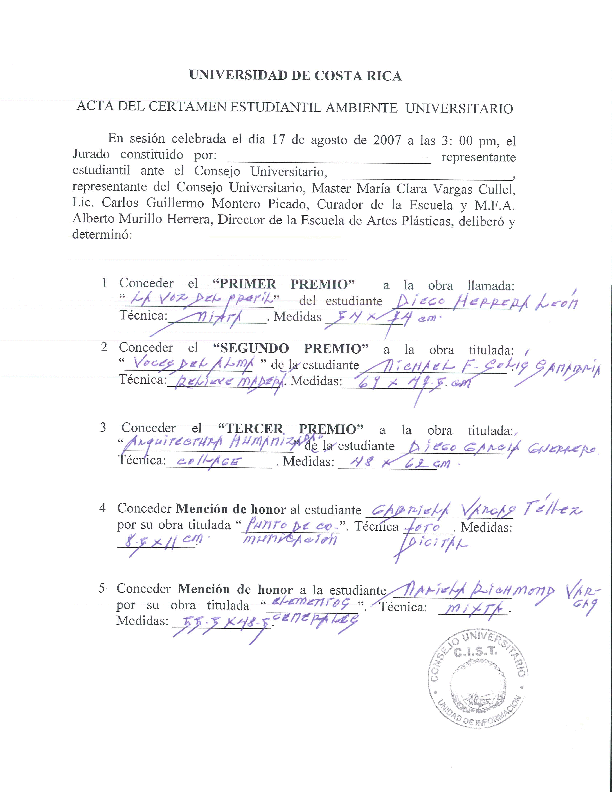 UNIVERSIDAD DE COSTA RICA
ACTA DEL CERTAMEN ESTUDIANTIL AMBIENTE UNIVERSITARIO
En sesión celebrada el día 17 de agosto de 2007 a las 3: 00 pm, el
Jurado constituido por: ____________________ representante
estudiantil ante el Consejo Universitario, ____________________,
representante del Consejo Universitario, Master María Clara Vargas Cullel,
Lic. Carlos Guillermo Montero Picado, Curador de la Escuela y M.F.A.
Alberto Murillo Herrera, Director de la Escuela de Artes Plásticas, deliberó y
determinó:
1 Conceder el “PRIMER PREMIO” a la obra llamada:
“ LA VOZ DEL PRETIL” del estudiante DIEGO HERRERA LEÓN
Técnica: MIXTA . Medidas 54 x 74 cm.
2 Conceder el “SEGUNDO PREMIO” a la obra titulada:
“ VOCES DEL ALMA ” de la estudiante MICHAEL F. SANABRIA
Técnica: RELIEVE MADERA. Medidas: 69 x 49.5 cm
3 Conceder el “TERCER PREMIO” a la obra titulada:
“ ARQUITECTURA HUMANIZADA” de la estudiante DIEGO GARCÍA GUERRERO
Técnica: COLLAGE . Medidas: 48 x 62 cm.
4 Conceder Mención de honor al estudiante GABRIELA VARGAS TÉLLEZ
por su obra titulada “ PUNTO DE CO-”. Técnica FOTO . Medidas:
8.5 x 11 cm. MUNICACIÓN DIGITAL
5 Conceder Mención de honor a la estudiante MARIELA RICHMOND VAR-
GAS
por su obra titulada “ ELEMENTOS ”. Técnica: MIXTA .
Medidas: 55.5 x 48.5. GENERALES
CONSEJO UNIVERSITARIO
C.I.S.T.
UNIDAD DE INFORMACION